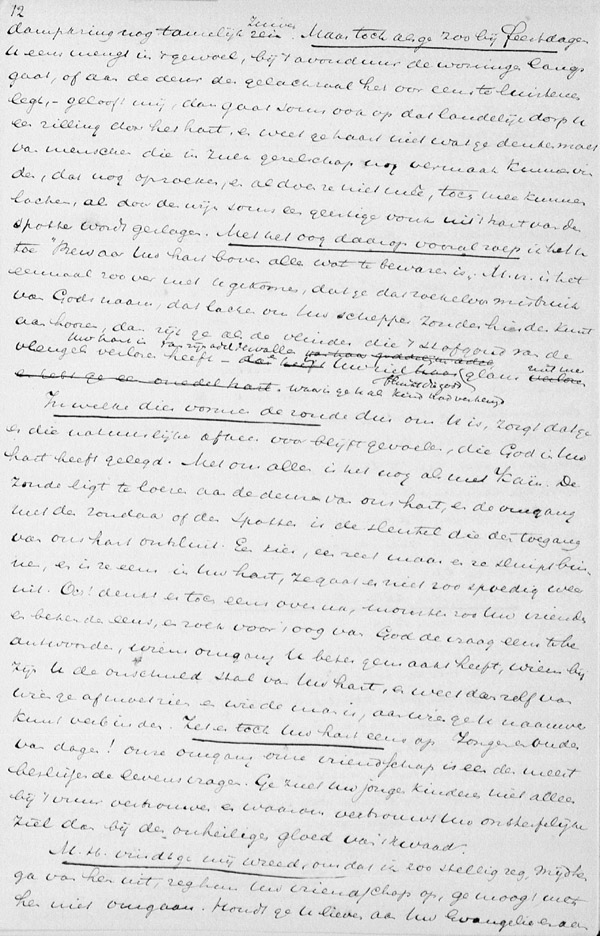 12
dampkring nog tamelijk rein. Zuiver Maar toch als ge zoo bij feestdagen
U eens mengt in 't gewoel, bij 't avonduur de woningen langs
gaat, of aan de deur der gelachzaal het oor eens te luisteren
legt, - gelooft mij, dan gaat soms ook op dat landelijk dorp U
een rilling door het hart, en weet ge haast niet wat ge denken moet
van menschen die in zulk gezelschap nog vermaak kunnen vin
den, dat nog opzoeken, en al doen ze niet mêe, toch mee kunnen
lachen, als door den wijn soms een geestige vonk uit 't hart van den
spotter wordt geslagen. Met het oog daarop vooral roep ik het U
toe "Bewaar Uw hart boven alles wat te bewaren is, M.vr. is het
eenmaal zoo ver met U gekomen, dat ge dat roekeloos misbruik
van Gods naam, dat lachen om Uw schepper zonder hinder kunt
aanhooren, dan zijt ge als de vlinder die 't stofgoud van de
vleugels verloren heeft - Uw hart is glans
waar is ge al
In welken dien vorm de zonde dus om U is, zorgt dat ge
er die natuurlijke afkeer voor blijft gevoelen, die God in Uw
hart heeft gelegd. Met ons allen is het nog als met Kaïn. De
zonde ligt te loeren aan de deuren van ons hart, en de omgang
met den zondaar of den spotter is de sleutel die den toegang
van ons hart ontsluit. Een kier, een reet maar en ze sluipt bin
nen, en is ze eens in Uw hart, ze gaat er niet zoo spoedig weer
uit. Och! denkt er toch eens over na, monster zoo Uw vrienden
en bekenden eens, en zoek voor 't oog van God de vraag eens te be
antwoorden, wiens omgang U beter gemaakt heeft, wiens bij
zijn U de onschuld stal van Uw hart, en weet dan zelf van
wien ge af moet zien en wie de man is, aan wien ge U nauwer
kunt verbinden. Zet er toch Uw hart eens op Jongen en ouden
van dagen! onze omgang onze vriendschap is een der meest
beslissende levensvragen. Ge zult Uw jonge kinderen niet alleen
bij 't vuur vertrouwen en waarom vertrouwt Uw onsterfelijke
ziel dan bij den onheiligen gloed van 't kwaad.
M.H. vindt ge mij wreed, omdat ik zoo stellig zeg, mijdt hen
ga van hen uit, zeg hun Uw vriendschap op, ge moogt met
hen niet omgaan. Houdt ge U liever aan Uw Evangelie en aan